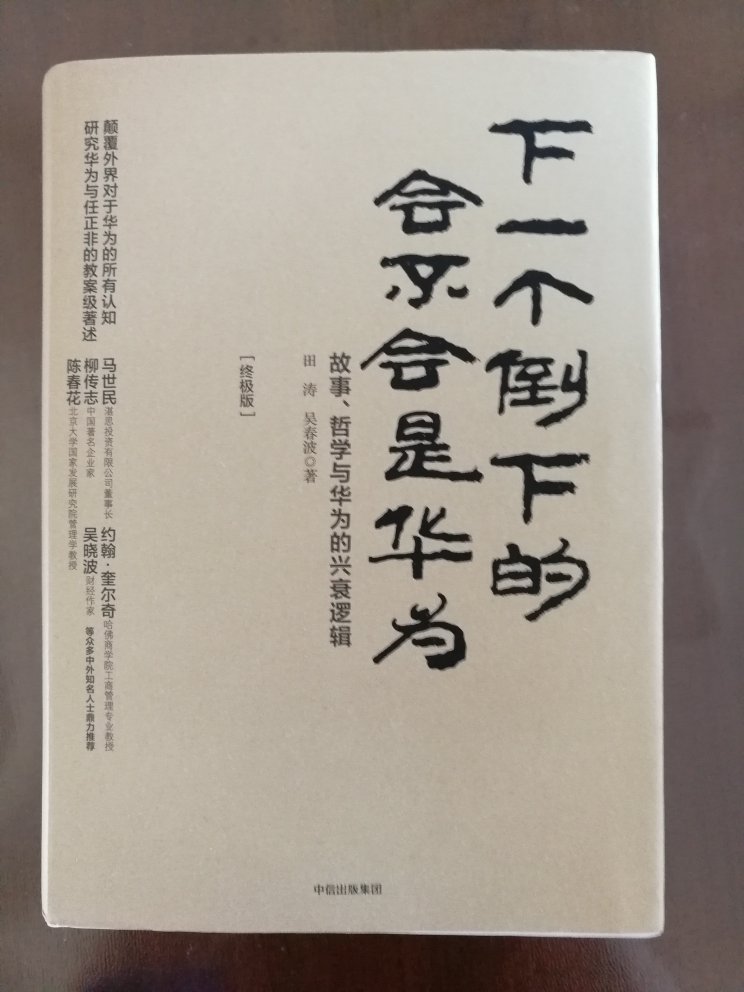 下一个倒下的
会不会是华为
故事、哲学与华为的兴衰逻辑
田 涛 吴春波◎著
[终极版]
颠覆外界对于华为的所有认知
研究华为与任正非的教案级著述
马世民 湛思投资有限公司董事长
柳传志 中国著名企业家
陈春花 北京大学国家发展研究院管理学教授
约翰·奎尔奇 哈佛商学院工商管理专业教授
吴晓波 财经作家 等众多中外知名人士鼎力推荐
中信出版集团